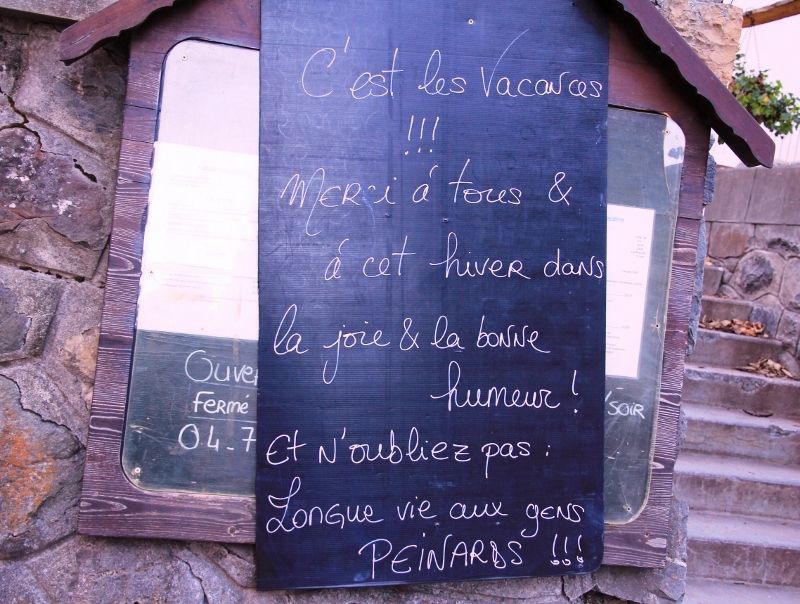 C'est les Vacances
!!!
Merci á tous &
á cet hiver dans
la joie & la bonne
humeur !
Et N'oubliez pas :
Longue vie aux gens
PEINARDS !!!
Fermé
04.7
/SOIR